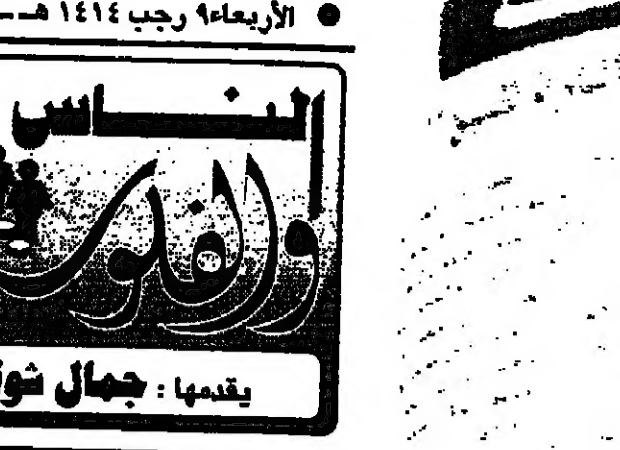 ● الأربعاء ٩ رجب ١٤١٤ هـ ــ
الناس
والقلوب
يقدمها : جمال